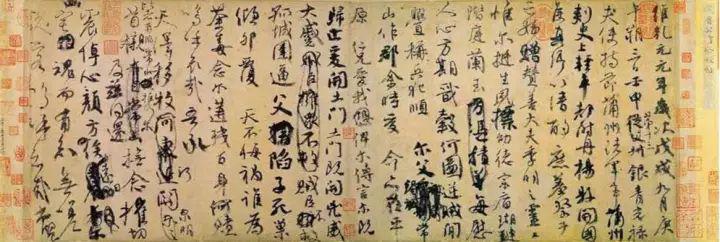 維乾元元年歲次戊戌九月庚
午朔三日壬申第十三叔銀青光祿
夫使持節蒲州諸軍事蒲州
刺史上輕車都尉丹楊縣開國
侯真卿以清酌庶羞祭于
亡姪贈贊善大夫季明之靈曰
惟爾挺生夙標幼德宗廟瑚璉
階庭蘭玉每慰
人心方期戩穀何圖逆賊閒
釁稱兵犯順爾父竭誠常
山作郡余時受命亦在平
原仁兄愛我俾爾傳言爾既
歸止爰開土門土門既開凶威
大蹙賊臣不救
孤城圍逼父陷子死巢
傾卵覆天不悔禍誰為
荼毒念爾遘殘百身何贖
嗚呼哀哉吾承
天澤移牧河關泉明
比者再陷常山攜爾
首櫬及茲同還撫念摧切
震悼心顏方俟
幽宅魂而有知無嗟
久客嗚呼哀哉尚饗